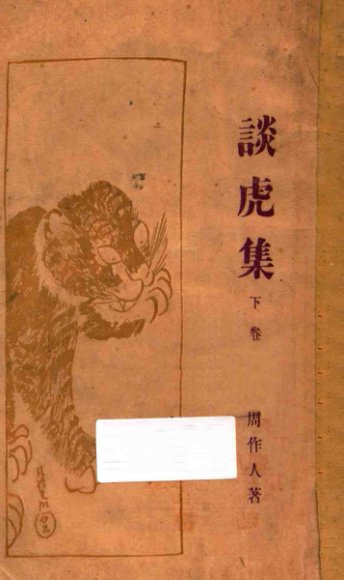 談虎集
下卷
周作人著